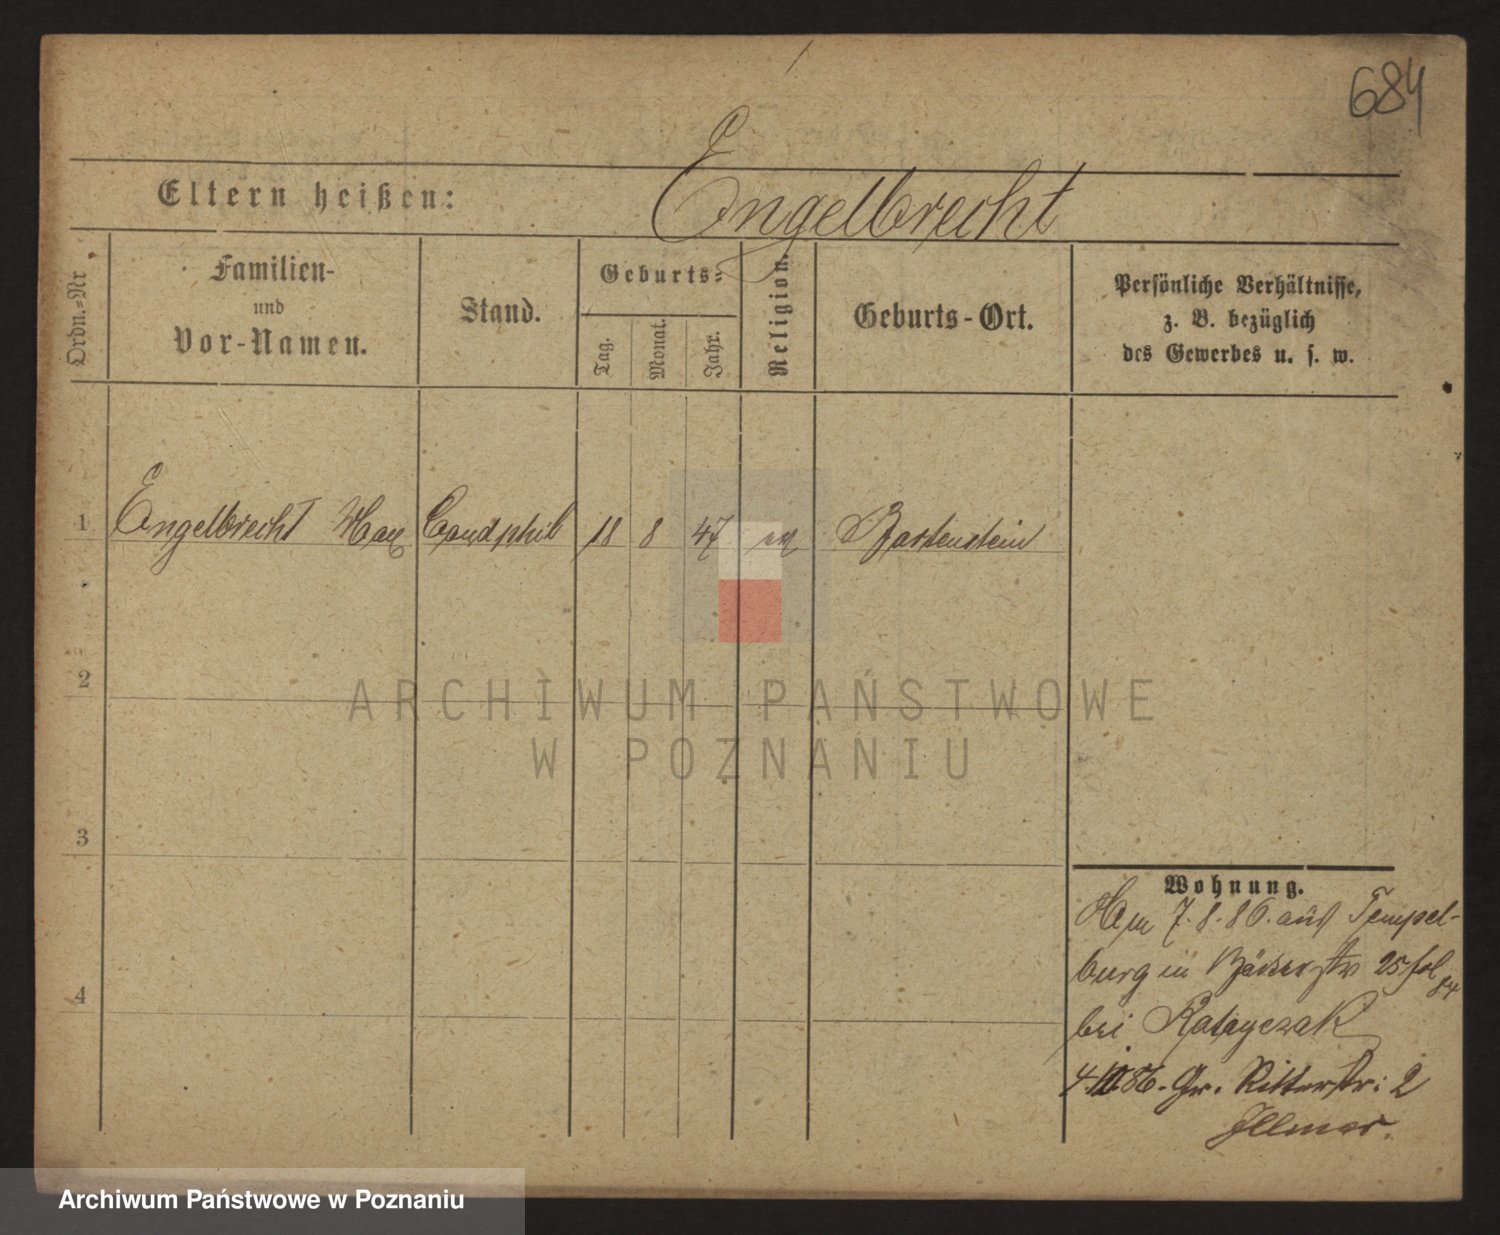 684
Eltern heißen: Engelbrecht
Ordn.-Nr
Familien-
und
Vor-Namen.
Stand.
Geburts-
Tag.
Monat.
Jahr.
Religion.
Geburts-Ort.
Persönliche Verhältnisse,
z. B. bezüglich
des Gewerbes u. s. w.
1 Engelbrecht Max Cand phil 18 8 47 ev Bartenstein
2
3
4
Wohnung.
7. 8. 86. aus Tempel-
burg in Bäckerstr 25
bei Ratayczak
4.10.86. Gr. Ritterstr: 2
Illmer.
ARCHIWUM PAŃSTWOWE
W POZNANIU
Archiwum Państwowe w Poznaniu